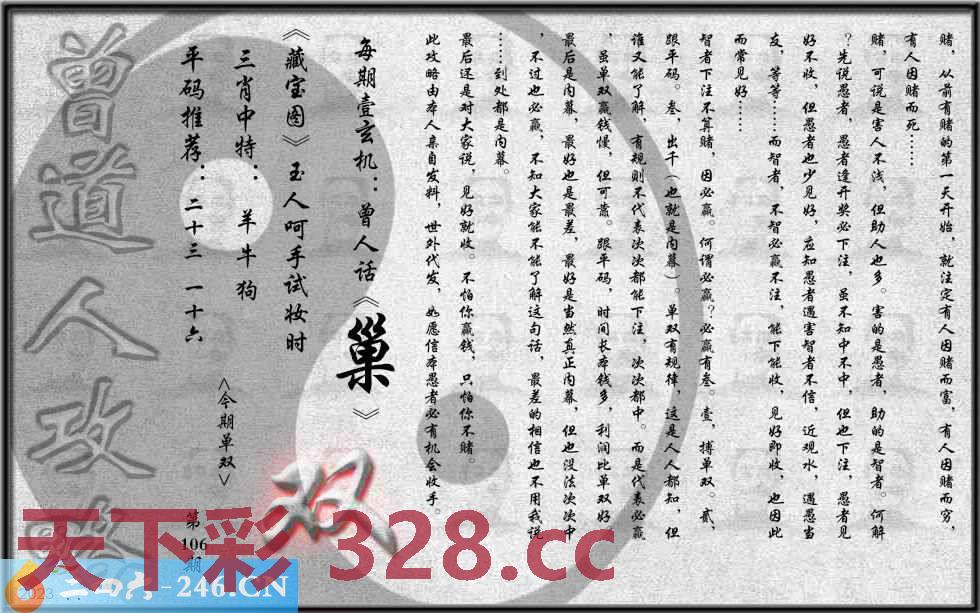 赌，从前有赌的第一天开始，就注定有人因赌而富，有人因赌而穷，
有人因赌而死……
赌，可说是害人不浅，但助人也多。害的是愚者，助的是智者。何解
？先说愚者，愚者逢开奖必下注，虽不知中不中，但也下注，愚者见
好不收，但愚者也少见好，应知愚者遇害智者不信，近观水，遇愚当
友，等等……而智者，不智必赢不注，能下能收，见好即收，也因此
而常见好……
智者下注不算赌，因必赢。何谓必赢？必赢有叁。壹，搏单双。贰，
跟平码。叁，出千（也就是内幕）。单双有规律，这是人人都知，但
谁又能了解，有规则不代表次次都能下注，次次都中。而是代表必赢
，虽单双赢钱慢，但可靠。跟平码，时间长本钱多，利润比单双好。
最后是内幕，最好也是最差，最好是当然真正内幕，但也没法次次中
，不过也必赢，不知大家能不能了解这句话，最差的相信也不用我说
……到处都是内幕。
最后还是对大家说，见好就收。不怕你赢钱，只怕你不赌。
此攻略由本人亲自发料，世外代发，如愿信本愚者必有机会收手。
每期壹玄机：曾人话《巢》
《藏宝图》玉人呵手试妆时
三肖中特：羊牛狗
平码推荐：二十三 一十六
<今期单双>
双
第106期
曾道人攻略
天下彩 328.cc
二四六-246.CN
2023